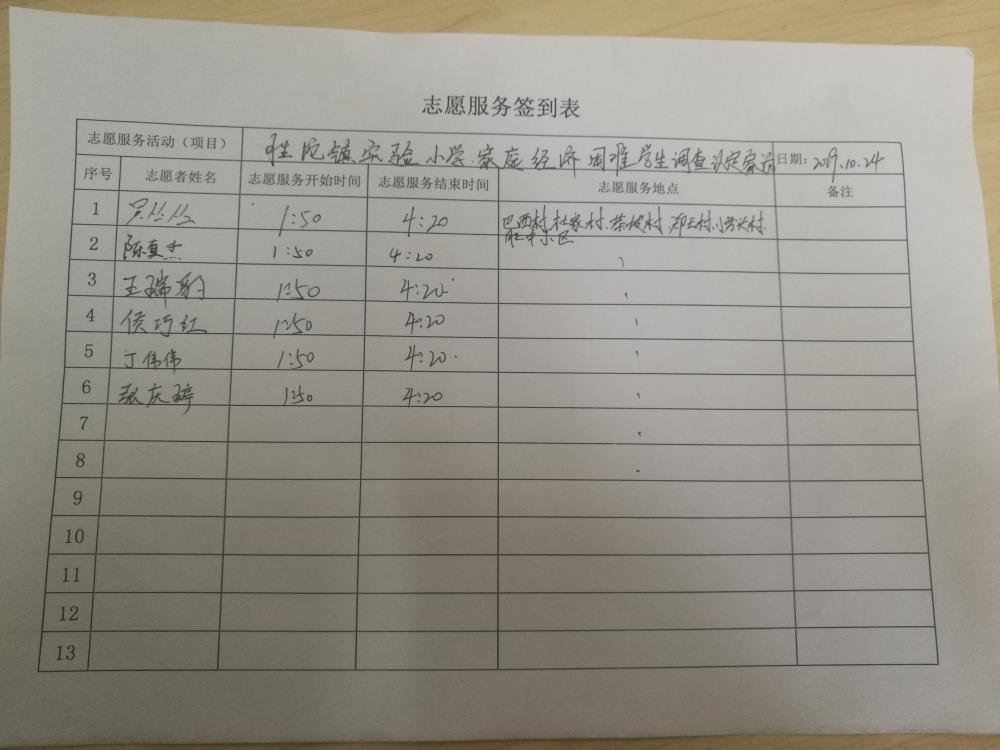 志愿服务签到表
志愿服务活动（项目） 胜坨镇实验小学家庭经济困难学生调查认定家访 日期：2019.10.24
序号 志愿者姓名 志愿服务开始时间 志愿服务结束时间 志愿服务地点 备注
1 1:50 4:20 巴西村、杜家村、
2 陈真杰 1:50 4:20
3 王瑞 1:50 4:20
4 侯巧红 1:50 4:20
5 丁伟伟 1:50 4:20
6 张庆婷 1:50 4:20
7
8
9
10
11
12
13